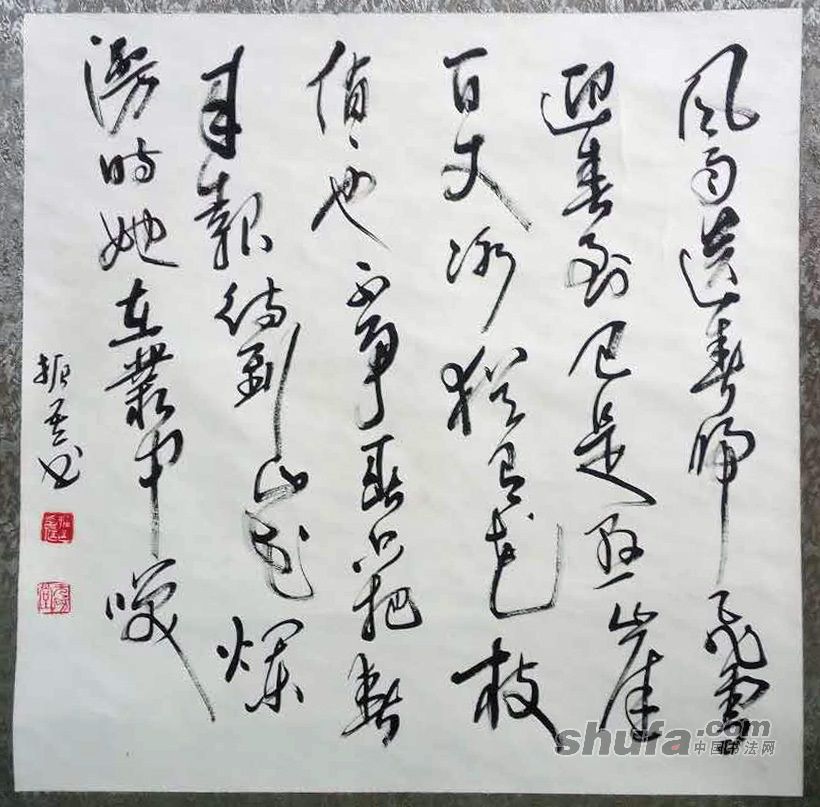 风雨送春归飞雪
迎春到已是悬崖
百丈冰犹有花枝
俏々也不争春只把春
来報待到山花爛
漫時她在叢中咲
振吾书
shufa.com
中国书法网